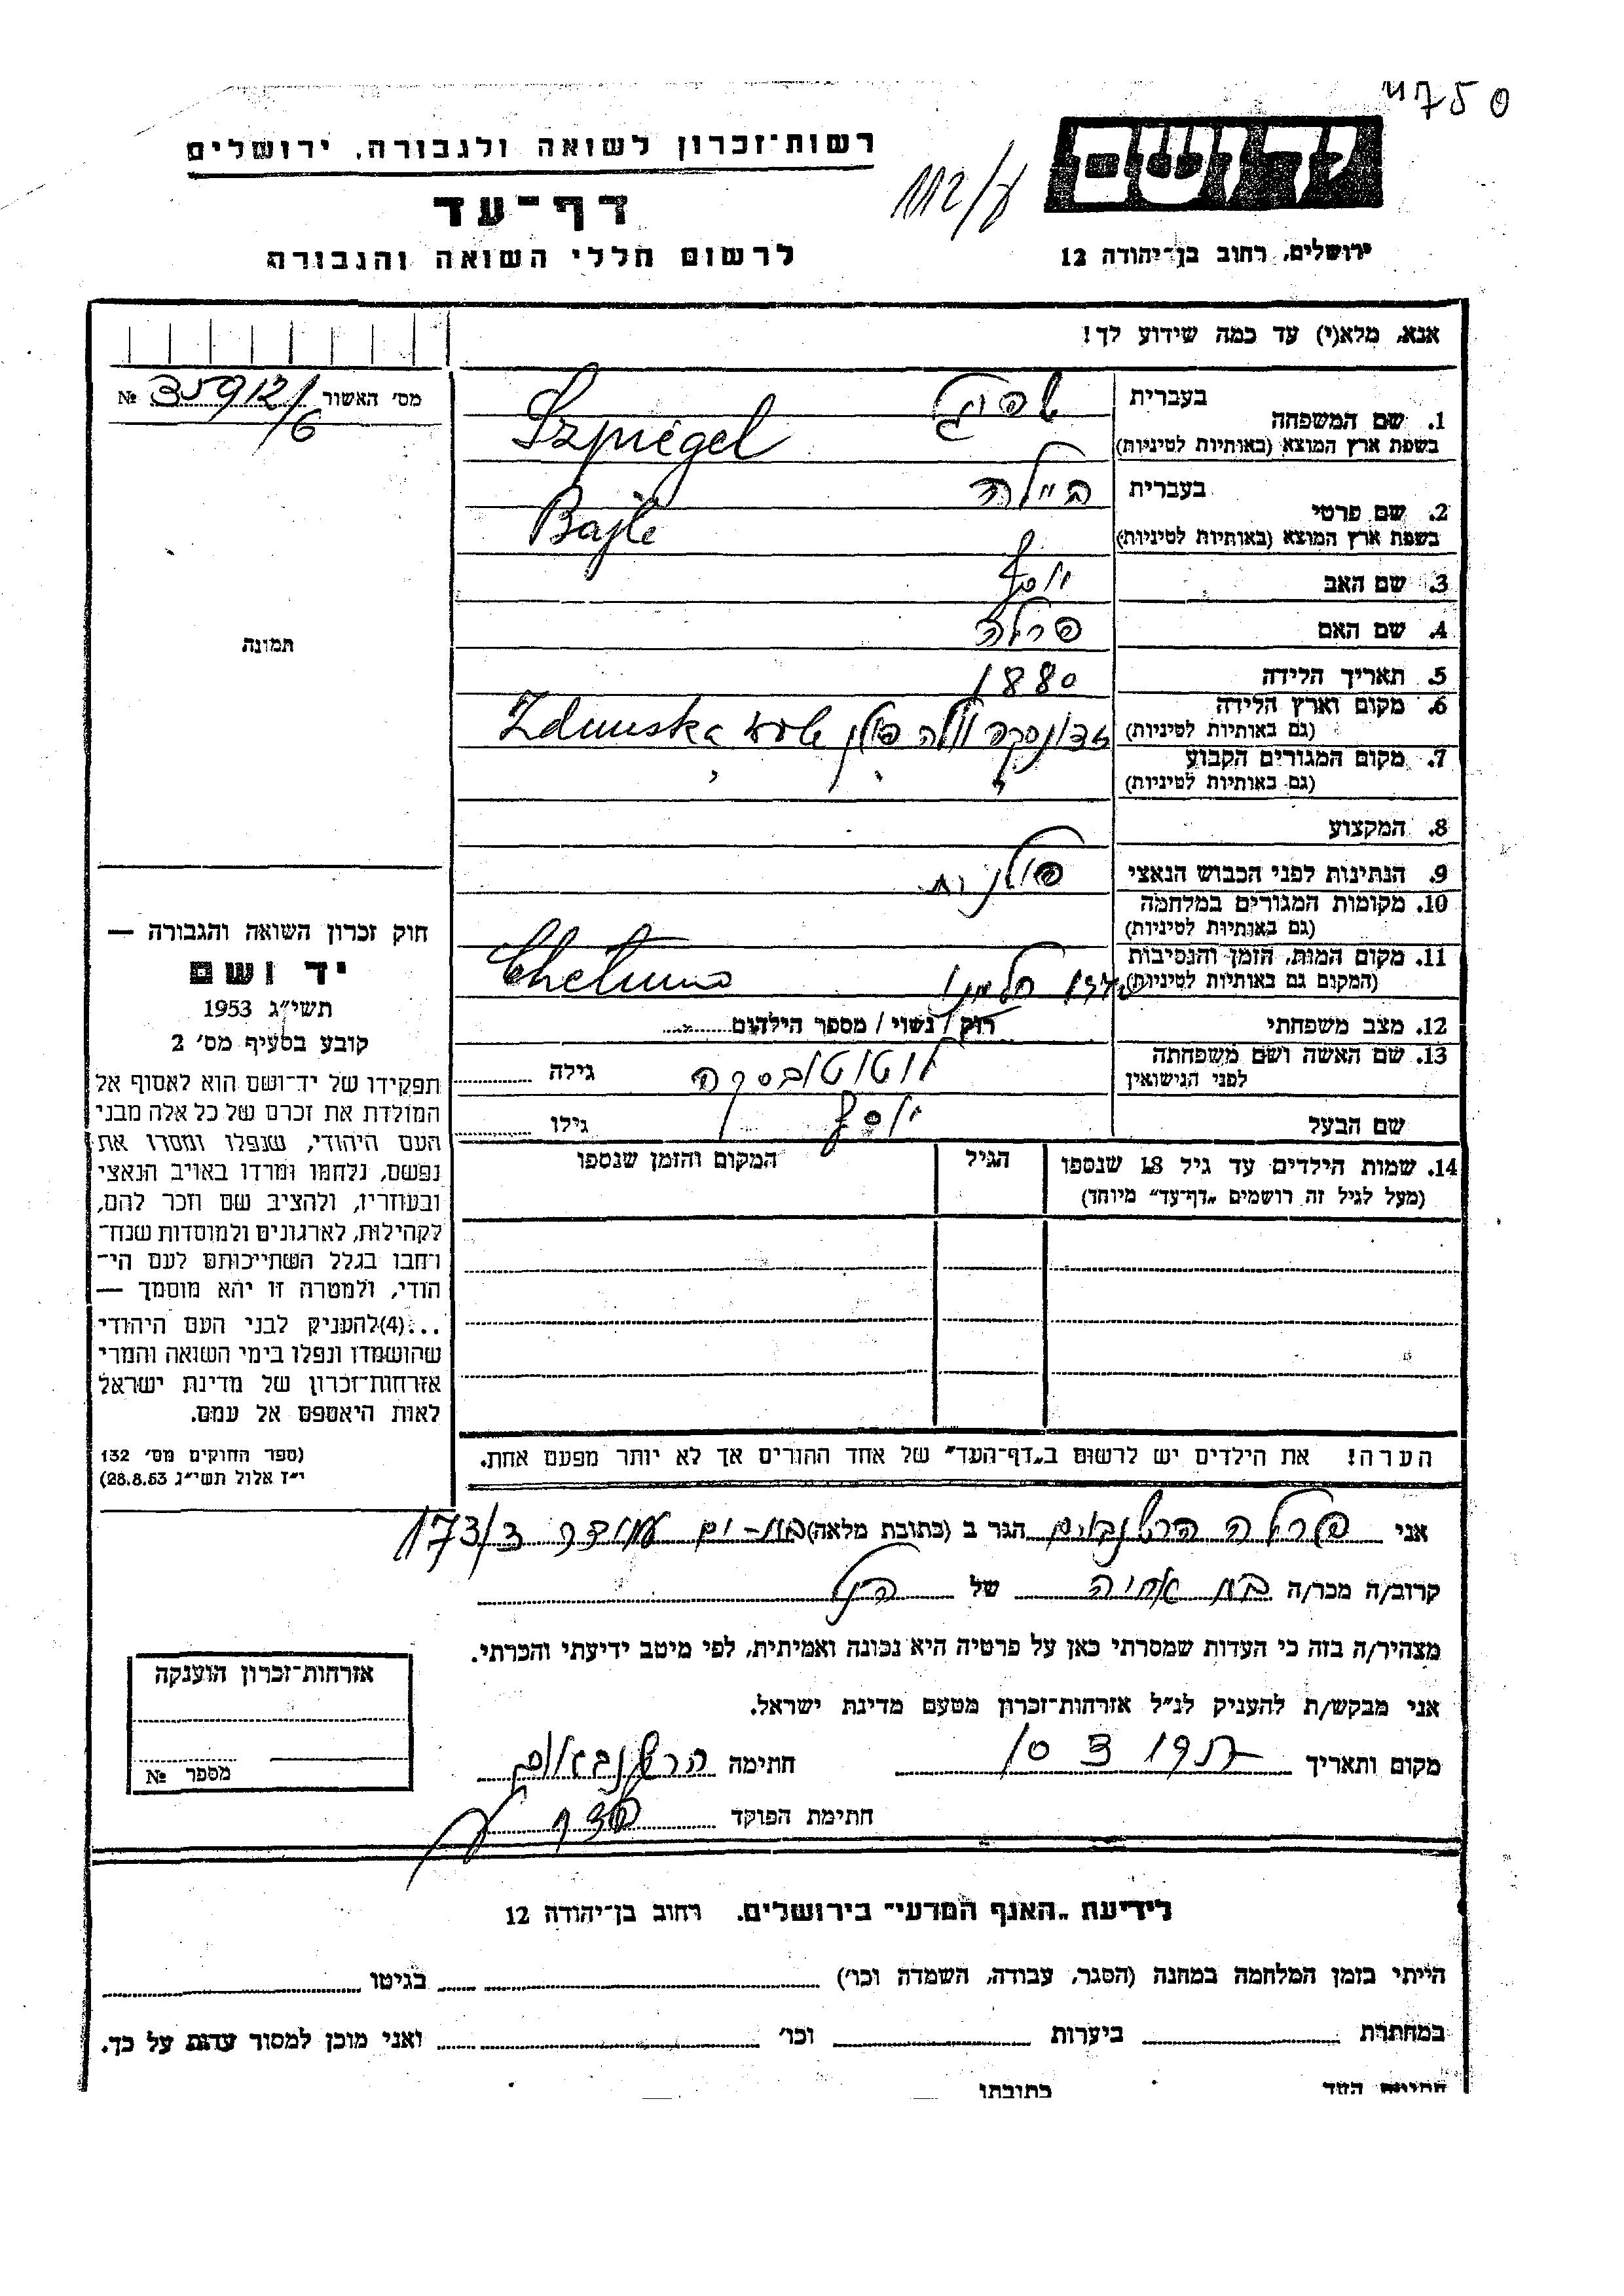 4750
רשות־זכרון לשואה ולגבורה, ירושלים
יד ושם
דף־עד
112/
לרשום חללי השואה והגבורה
ירושלים, רחוב בן־יהודה 12
אנא, מלא(י) עד כמה שידוע לך!
מס' האשור № 35912/6
1. שם המשפחה
בעברית שפיגל
בשפת ארץ המוצא (באותיות לטיניות) Szpiegel
2. שם פרטי
בעברית ביילה
בשפת ארץ המוצא (באותיות לטיניות) Bajle
3. שם האב יוסף
4. שם האם פרלה
תמונה
5. תאריך הלידה 1880
6. מקום וארץ הלידה
(גם באותיות לטיניות) זדונסקה וולה פולין Zdunska
7. מקום המגורים הקבוע
(גם באותיות לטיניות)
8. המקצוע
9. הנתינות לפני הכבוש הנאצי פולנית
10. מקומות המגורים במלחמה
(גם באותיות לטיניות)
11. מקום המות, הזמן והנסיבות
(המקום גם באותיות לטיניות) חלמנו Chelmno
12. מצב משפחתי רוק / נשוי / מספר הילדים
13. שם האשה ושם משפחתה
לפני הנישואין גילה
שם הבעל יוסף גילו
14. שמות הילדים עד גיל 18 שנספו
(מעל לגיל זה רושמים „דף־עד” מיוחד)
הגיל
המקום והזמן שנספו
הערה! את הילדים יש לרשום ב„דף־העד” של אחד ההורים אך לא יותר מפעם אחת.
חוק זכרון השואה והגבורה —
יד ושם
תשי״ג 1953
קובע בסעיף מס' 2
תפקידו של יד־ושם הוא לאסוף אל
המולדת את זכרם של כל אלה מבני
העם היהודי, שנפלו ומסרו את
נפשם, נלחמו ומרדו באויב הנאצי
ובעוזריו, ולהציב שם וזכר להם,
לקהילות, לארגונים ולמוסדות שנח־
רבו בגלל השתייכותם לעם הי־
הודי, ולמטרה זו יהא מוסמך —
...(4)להעניק לבני העם היהודי
שהושמדו ונפלו בימי השואה והמרי
אזרחות־זכרון של מדינת ישראל
לאות היאספם אל עמם.
(ספר החוקים מס' 132
י״ז אלול תשי״ג 28.8.53)
אני פרלה הרשנבאום הגר ב (כתובת מלאה) בת-ים 173/3
קרוב/ה מכר/ה בת אחיה של הנ״ל
מצהיר/ה בזה כי העדות שמסרתי כאן על פרטיה היא נכונה ואמיתית, לפי מיטב ידיעתי והכרתי.
אני מבקש/ת להעניק לנ״ל אזרחות־זכרון מטעם מדינת ישראל.
מקום ותאריך 10 3 חתימה הרשנבאום
חתימת הפוקד
אזרחות־זכרון הוענקה
מספר №
לידיעת „האגף המדעי” בירושלים, רחוב בן־יהודה 12
הייתי בזמן המלחמה במחנה (הסגר, עבודה, השמדה וכו') בגיטו
במחתרת ביערות וכו' ואני מוכן למסור עדות על כך.
חתימת העד כתובתו